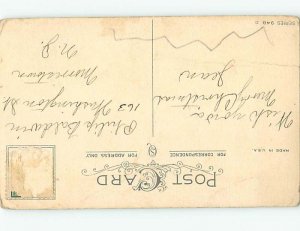 POST CARD
FOR CORRESPONDENCE
FOR ADDRESS ONLY
Wish you a
Merry Christmas
Jean
Philip Baldwin
163 Washington St
Morristown
N. J.
MADE IN U.S.A.
SERIES 949 D